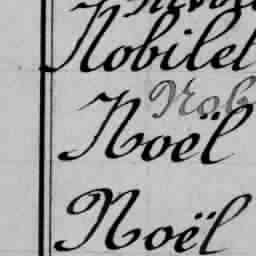 Nobilet
Nob
Noël
Noël